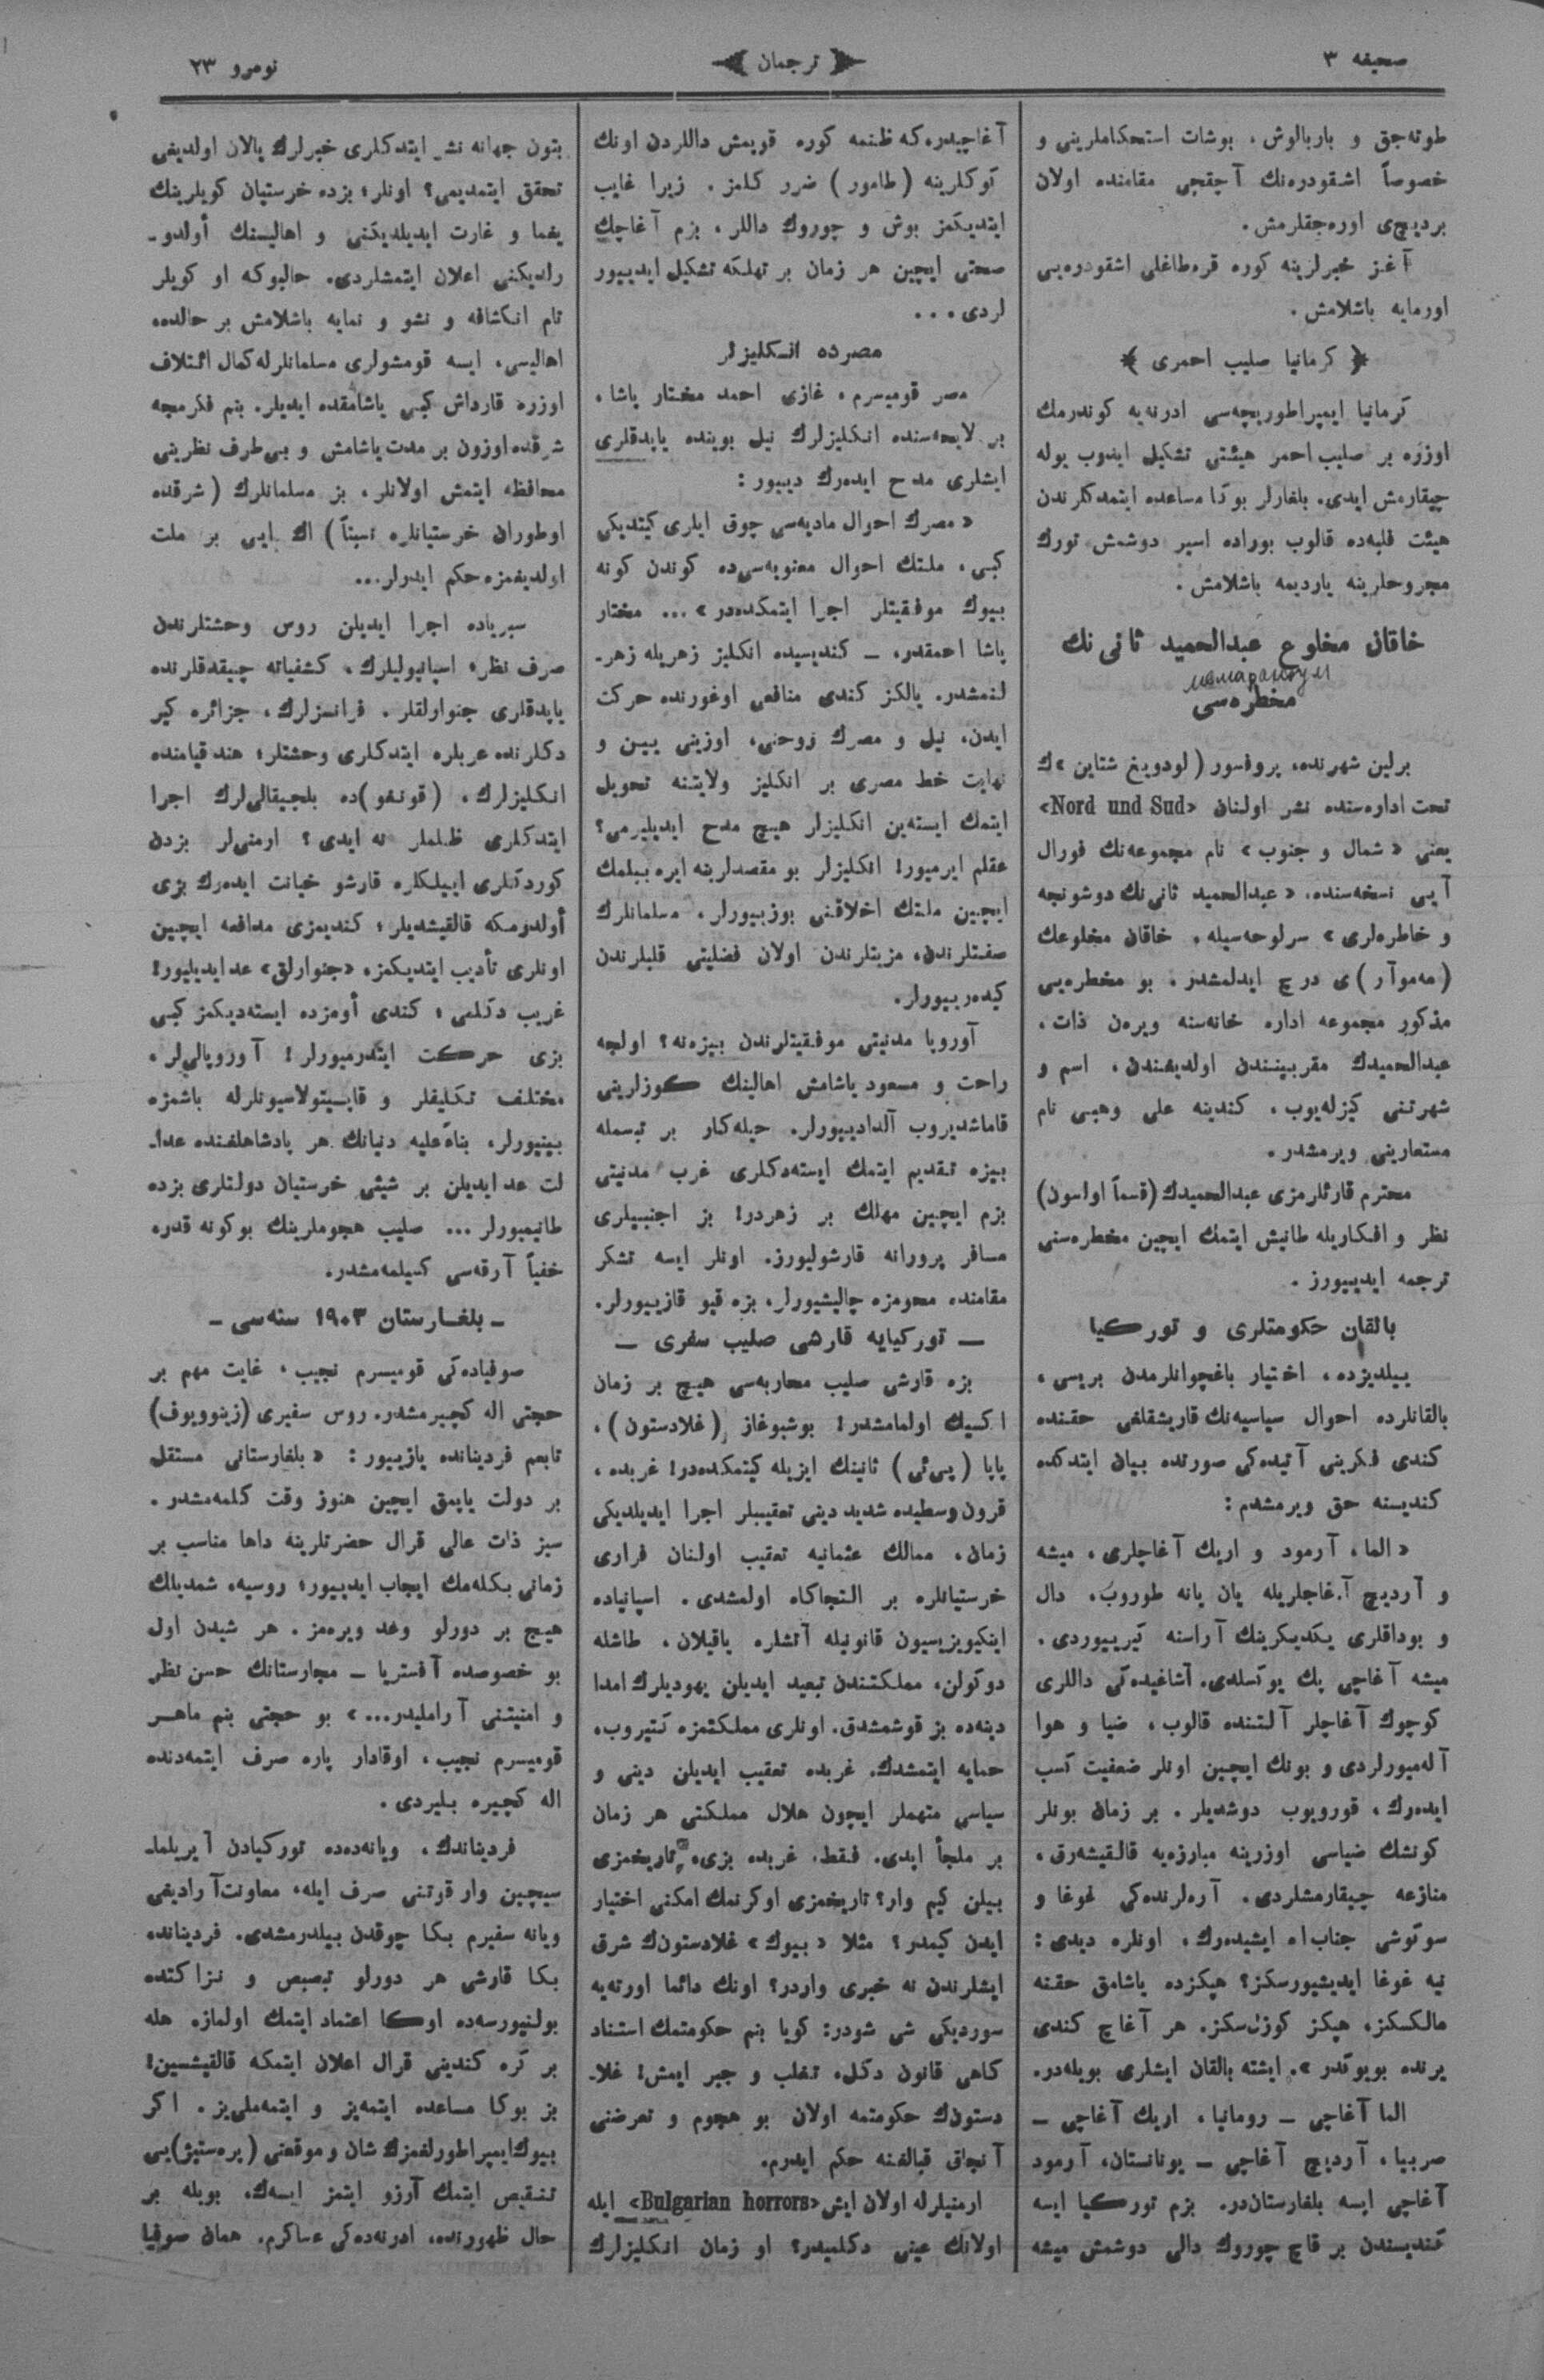 صحیفه ٣
ترجمان
نومرو ٢٣
طوته‌جق و باربالوش، بوشات استحکاملرینی و
خصوصاً اشقودره‌نك آچقجی مقامنده اولان
بردیچ‌ی اوره‌جقلرمش.
آغز خبرلرینه کوره قره‌طاغلی اشقودره‌یی
اورمایه باشلامش.
کرمانیا صلیب احمری
کرمانیا ایمپراطوریچه‌سی ادرنه‌یه کوندرمك
اوزره بر صلیب احمر هیئتی تشکیل ایدوب یوله
چیقارمش ایدی. بلغارلر بوکا مساعده ایتمدکلرندن
هیئت فلبه‌ده قالوب بوراده اسیر دوشمش تورك
مجروحلرینه یاردیمه باشلامش.
خاقان مخلوع عبدالحمید ثانی نك
مخطره‌سی
برلین شهرنده، پروفسور (لودویغ شتاین)ك
تحت اداره‌سنده نشر اولنان «Nord und Sud»
یعنی «شمال و جنوب» نام مجموعه‌نك فورال
آیی نسخه‌سنده، «عبدالحمید ثانی‌نك دوشونجه
و خاطره‌لری» سرلوحه‌سیله، خاقان مخلوعك
(مه‌موآر)ی درج ایدلمشدر. بو مخطره‌یی
مذکور مجموعه اداره خانه‌سنه ویره‌ن ذات،
عبدالحمیدك مقربیننندن اولدیغندن، اسم و
شهرتنی کیزله‌یوب، کندینه علی وهبی نام
مستعارینی ویرمشدر.
محترم قارئلرمزی عبدالحمیدك (قسماً اولسون)
نظر و افکاریله طانیش ایتمك ایچین مخطره‌سنی
ترجمه ایدییورز.
بالقان حکومتلری و تورکیا
ییلدیزده، اختیار باغچوانلرمدن بریسی،
بالقانلرده احوال سیاسیه‌نك قاریشقلغی حقنده
کندی فکرینی آتیده‌کی صورتده بیان ایتدکده
کندیسنه حق ویرمشدم:
«الما، آرمود و اریك آغاچلری، میشه
و آردیچ آغاچلریله یان یانه طوروب، دال
و بوداقلری یکدیکرینك آراسنه کیرییوردی.
میشه آغاچی پك یوکسلدی. آشاغیده‌کی داللری
کوچوك آغاچلر آلتنده قالوب، ضیا و هوا
آله‌میورلردی و بونك ایچین اونلر ضعفیت کسب
ایده‌رك، قورویوب دوشدیلر. بر زمان بونلر
کونشك ضیاسی اوزرینه مبارزه‌یه قالقیشه‌رق،
منازعه چیقارمشلردی. آره‌لرنده‌کی غوغا و
سوکوشی جناب الله ایشیده‌رك، اونلره دیدی:
نیه غوغا ایدیشیورسکز؟ هپکزده یاشامق حقنه
مالکسکز، هپکز کوزل‌سکز. هر آغاچ کندی
یرنده بویوکدر». ایشته بالقان ایشلری بویله‌در.
الما آغاچی ـ رومانیا، اریك آغاچی ـ
صربیا، آردیچ آغاچی ـ یونانستان، آرمود
آغاچی ایسه بلغارستان‌در. بزم تورکیا ایسه
کندیسندن بر قاچ چوروك دالی دوشمش میشه
آغاچیدر، که ظنمه کوره قوپمش داللردن اونك
کوکلرینه (طامور) ضرر کلمز. زیرا غایب
ایتدیکمز بوش و چوروك داللر، بزم آغاچك
صحتی ایچین هر زمان بر تهلکه تشکیل ایدییور
لردی...
مصرده انکلیزلر
مصر قومیسرم، غازی احمد مختار پاشا،
بر لایحه‌سنده انکلیزلرك نیل بوینده یاپدقلری
ایشلری مدح ایده‌رك دییور:
«مصرك احوال مادیه‌سی چوق ایلری کیتدیکی
کبی، ملتك احوال معنویه‌سی‌ده کوندن کونه
بیوك موفقیتلر اجرا ایتمکده‌در»... مختار
پاشا احمقدر، ـ کندیسیده انکلیز زهریله زهرـ
لنمشدر. یالکز کندی منافعی اوغورنده حرکت
ایدن، نیل و مصرك روحنی، اوزینی یین و
نهایت خط مصری بر انکلیز ولایتنه تحویل
ایتمك ایسته‌ین انکلیزلر هیچ مدح ایدیلیرمی؟
عقلم ایرمیور! انکلیزلر بو مقصدلرینه ایره بیلمك
ایچین ملتك اخلاقنی بوزییورلر، مسلمانلرك
صفتلرندن، مزیتلرندن اولان فضلیتی قلبلرندن
کیده‌رییورلر.
آوروپا مدنیتی موفقیتلرندن بیزه‌نه؟ اولجه
راحت و مسعود یاشامش اهالینك کوزلرینی
قاماشدیروب آلدادییورلر. حیله‌کار بر تبسمله
بیزه تقدیم ایتمك ایسته‌دکلری غرب مدنیتی
بزم ایچین مهلك بر زهردر! بز اجنبیلری
مسافر پرورانه قارشولیورز. اونلر ایسه تشکر
مقامنده محومزه چالیشیورلر، بزه قیو قازییورلر.
ـ تورکیایه قارشی صلیب سفری ـ
بزه قارشی صلیب محاربه‌سی هیچ بر زمان
اکسیك اولمامشدر! بوشبوغاز (غلادستون)،
پاپا (پی‌ئی) ثانینك ایزیله کیتمکده‌در! غربده،
قرون وسطیده شدید دینی تعقیبلر اجرا ایدیلدیکی
زمان، ممالك عثمانیه تعقیب اولنان فراری
خرستیانلره بر التجاکاه اولمشدی. اسپانیاده
اینکیویزیسیون قانونیله آتشلره یاقیلان، طاشله
دوکولن، مملکتندن تبعید ایدیلن یهودیلرك امدا
دینه‌ده بز قوشمشدق. اونلری مملکتمزه کتیروب،
حمایه ایتمشدك. غربده تعقیب ایدیلن دینی و
سیاسی متهملر ایچون هلال مملکتی هر زمان
بر ملجأ ایدی. فقط، غربده بزی، تاریخمزی
بیلن کیم وار؟ تاریخمزی اوکرنمك امکنی اختیار
ایدن کیمدر؟ مثلا «بیوك» غلادستون‌ك شرق
ایشلرندن نه خبری واردر؟ اونك دائما اورته‌یه
سوردیکی شی شودر: کویا بنم حکومتمك استناد
کاهی قانون دکل، تغلب و جبر ایمش! غلاـ
دستون‌ك حکومتمه اولان بو هجوم و تعرضنی
آنجاق قبالغنه حکم ایدرم.
ارمنیلرله اولان ایش «Bulgarian horrors» ایله
اولانك عینی دکلمیدر؟ او زمان انکلیزلرك
بتون جهانه نشر ایتدکلری خبرلرك یالان اولدیغی
تحقق ایتمدیمی؟ اونلر؛ بزده خرستیان کویلرینك
یغما و غارت ایدیلدیکنی و اهالیسنك أولدوـ
رلدیکنی اعلان ایتمشلردی. حالبوکه او کویلر
تام انکشافه و نشو و نمایه باشلامش بر حالده،
اهالیسی، ایسه قومشولری مسلمانلرله کمال ائتلاف
اوزره قارداش کبی یاشامقده ایدیلر. بنم فکرمجه
شرقده اوزون بر مدت یاشامش و بی‌طرف نظرینی
محافظه ایتمش اولانلر، بز مسلمانلرك (شرقده
اوطوران خرستیانلره نسبتاً) اك ایی بر ملت
اولدیغمزه حکم ایدرلر...
سبریاده اجرا ایدیلن روس وحشتلرندن
صرف نظر، اسپانیولیلرك، کشفیاته چیقدقلرنده
یاپدقلری جنوارلقلر، فرانسزلرك، جزائره کیر
دکلرنده عربلره ایتدکلری وحشتلر؛ هند قیامنده
انکلیزلرك، (قونغو)ده بلجیقالی‌لرك اجرا
ایتدکلری ظلملر نه ایدی؟ ارمنی‌لر بزدن
کوردکلری اییلکلره قارشو خیانت ایده‌رك بزی
أولدومکه قالقیشدیلر؛ کندیمزی مدافعه ایچین
اونلری تأدیب ایتدیکمزه «جنوارلق» عد ایدیلیور!
غریب دکلمی؛ کندی أومزده ایسته‌دیکمز کبی
بزی حرکت ایتدرمیورلر! آوروپالی‌لر،
مختلف تکلیفلر و قاپیتولاسیونلرله باشمزه
بینیورلر، بناءً علیه دنیانك هر پادشاهلغنده عداـ
لت عد ایدیلن بر شیئی خرستیان دولتلری بزده
طانیمیورلر... صلیب هجوملرینك بوکونه قدره
خفیاً آرقه‌سی کسیلمه‌مشدر.
ـ بلغارستان ١٩٠٣ سنه‌سی ـ
صوفیاده‌کی قومیسرم نجیب، غایت مهم بر
حجتی اله کچیرمشدر. روس سفیری (زینوویوف)
تابعم فردینانده یازییور: «بلغارستانی مستقل
بر دولت یاپمق ایچین هنوز وقت کلمه‌مشدر.
سیز ذات عالی قرال حضرتلرینه داها مناسب بر
زمانی بکله‌مك ایجاب ایدییور؛ روسیه، شمدیلك
هیچ بر دورلو وعد ویره‌مز. هر شیدن اول
بو خصوصده آفستریا ـ مجارستانك حسن نظر
و امنیتنی آراملیدر...» بو حجتی بنم ماهر
قومیسرم نجیب، اوقادار پاره صرف ایتمه‌دنده
اله کچیره بلیردی.
فردیناندك، ویانه‌ده‌ده تورکیادن آیریلماـ
سیچین وار قوتنی صرف ایله، معاونت آرادیغی
ویانه سفیرم بکا چوقدن بیلدرمشدی. فردیناند،
بکا قارشی هر دورلو تبصبص و نزاکتده
بولنیورسه‌ده اوکا اعتماد ایتمك اولماز، هله
بر کره کندینی قرال اعلان ایتمکه قالقیشسین!
بز بوکا مساعده ایتمه‌یز و ایتمه‌ملی‌یز. اکر
بیوك ایمپراطورلغمزك شان و موقعنی (پره‌ستیژ)یی
تنقیص ایتمك آرزو ایتمز ایسه‌ك، بویله بر
حال ظهورنده، ادرنه‌ده‌کی عساکرم، همان صوفیا